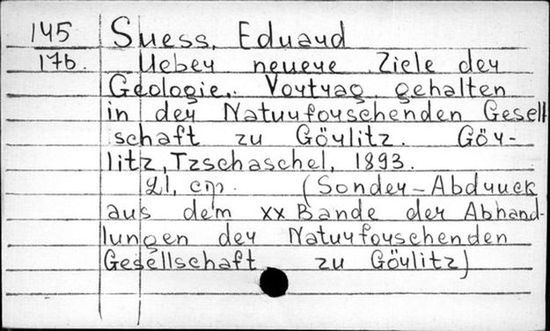 145 Suess, Eduard
17b. Ueber neuere Ziele der
Geologie. Vortrag gehalten
in der Naturforschenden Gesell
schaft zu Görlitz. Gör-
litz, Tzschaschel, 1893.
21, cтр. (Sonder-Abdruck
aus dem XX Bande der Abhand-
lungen der Naturforschenden
Gesellschaft zu Görlitz)